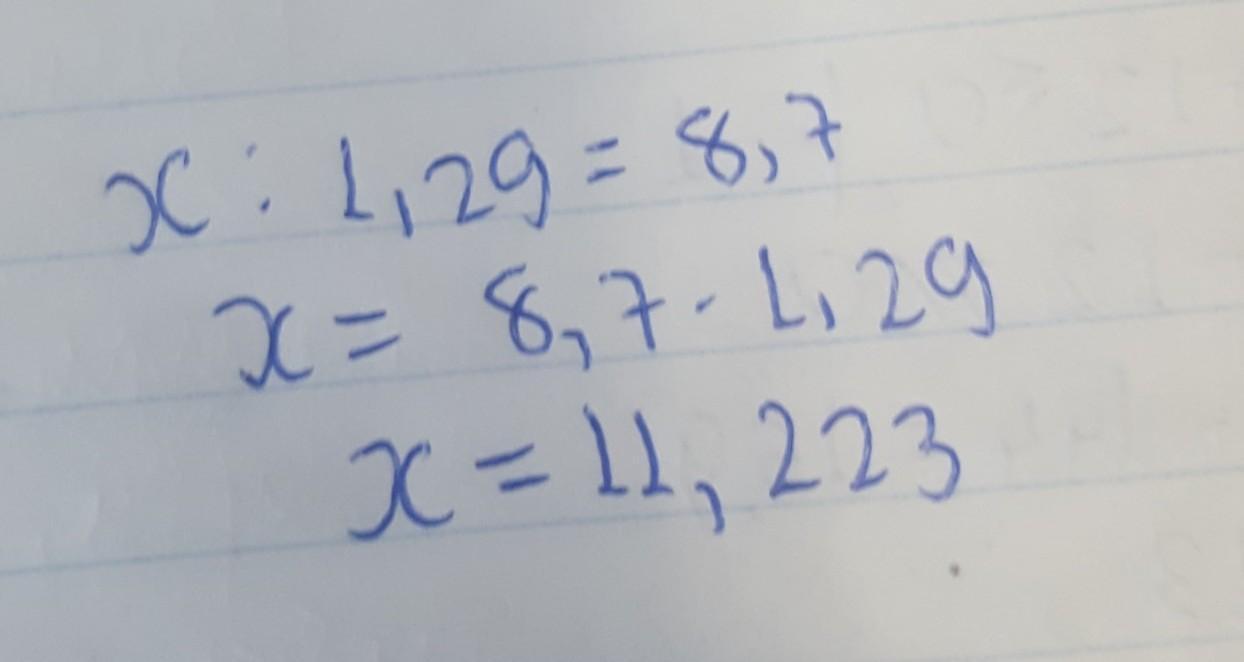 x : 1,29 = 8,7
x = 8,7 . 1,29
x = 11,223